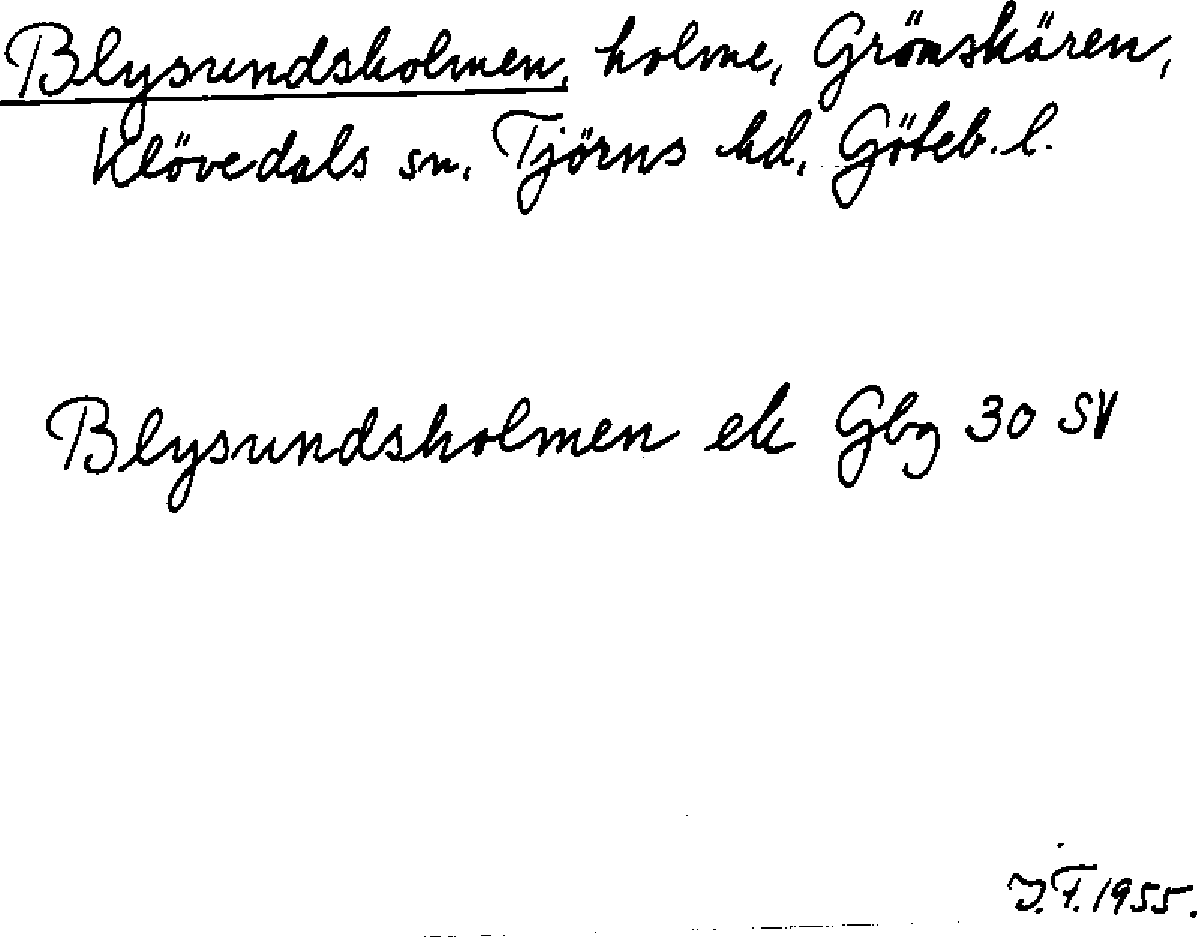 Blysundsholmen, holme, Grönskären,
Klövedals sn. Tjörns hd. Göteb. l.
Blysundsholmen ek Gbg 30 SV
J.F. 1955.